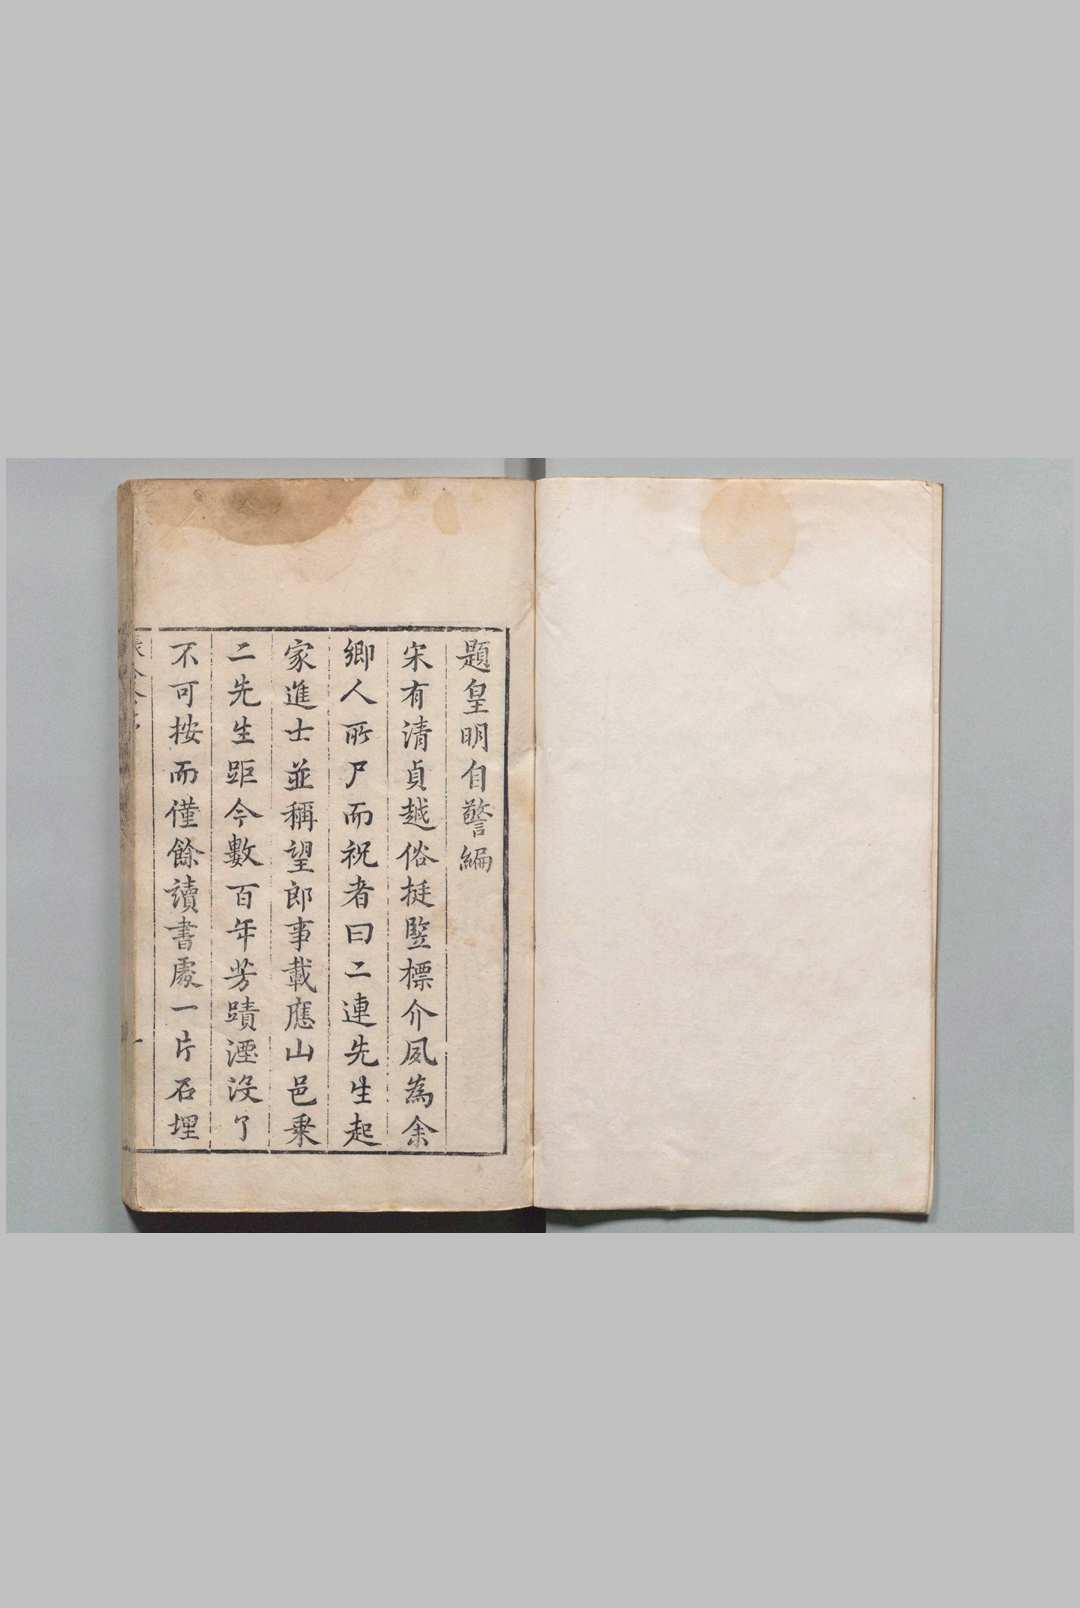 題皇明自警編
宋有清貞越俗挺豎標介夙為余
鄉人所尸而祝者曰二連先生起
家進士並稱望郎事載應山邑乗
二先生距今數百年芳蹟湮沒了
不可按而僅餘讀書處一片石埋